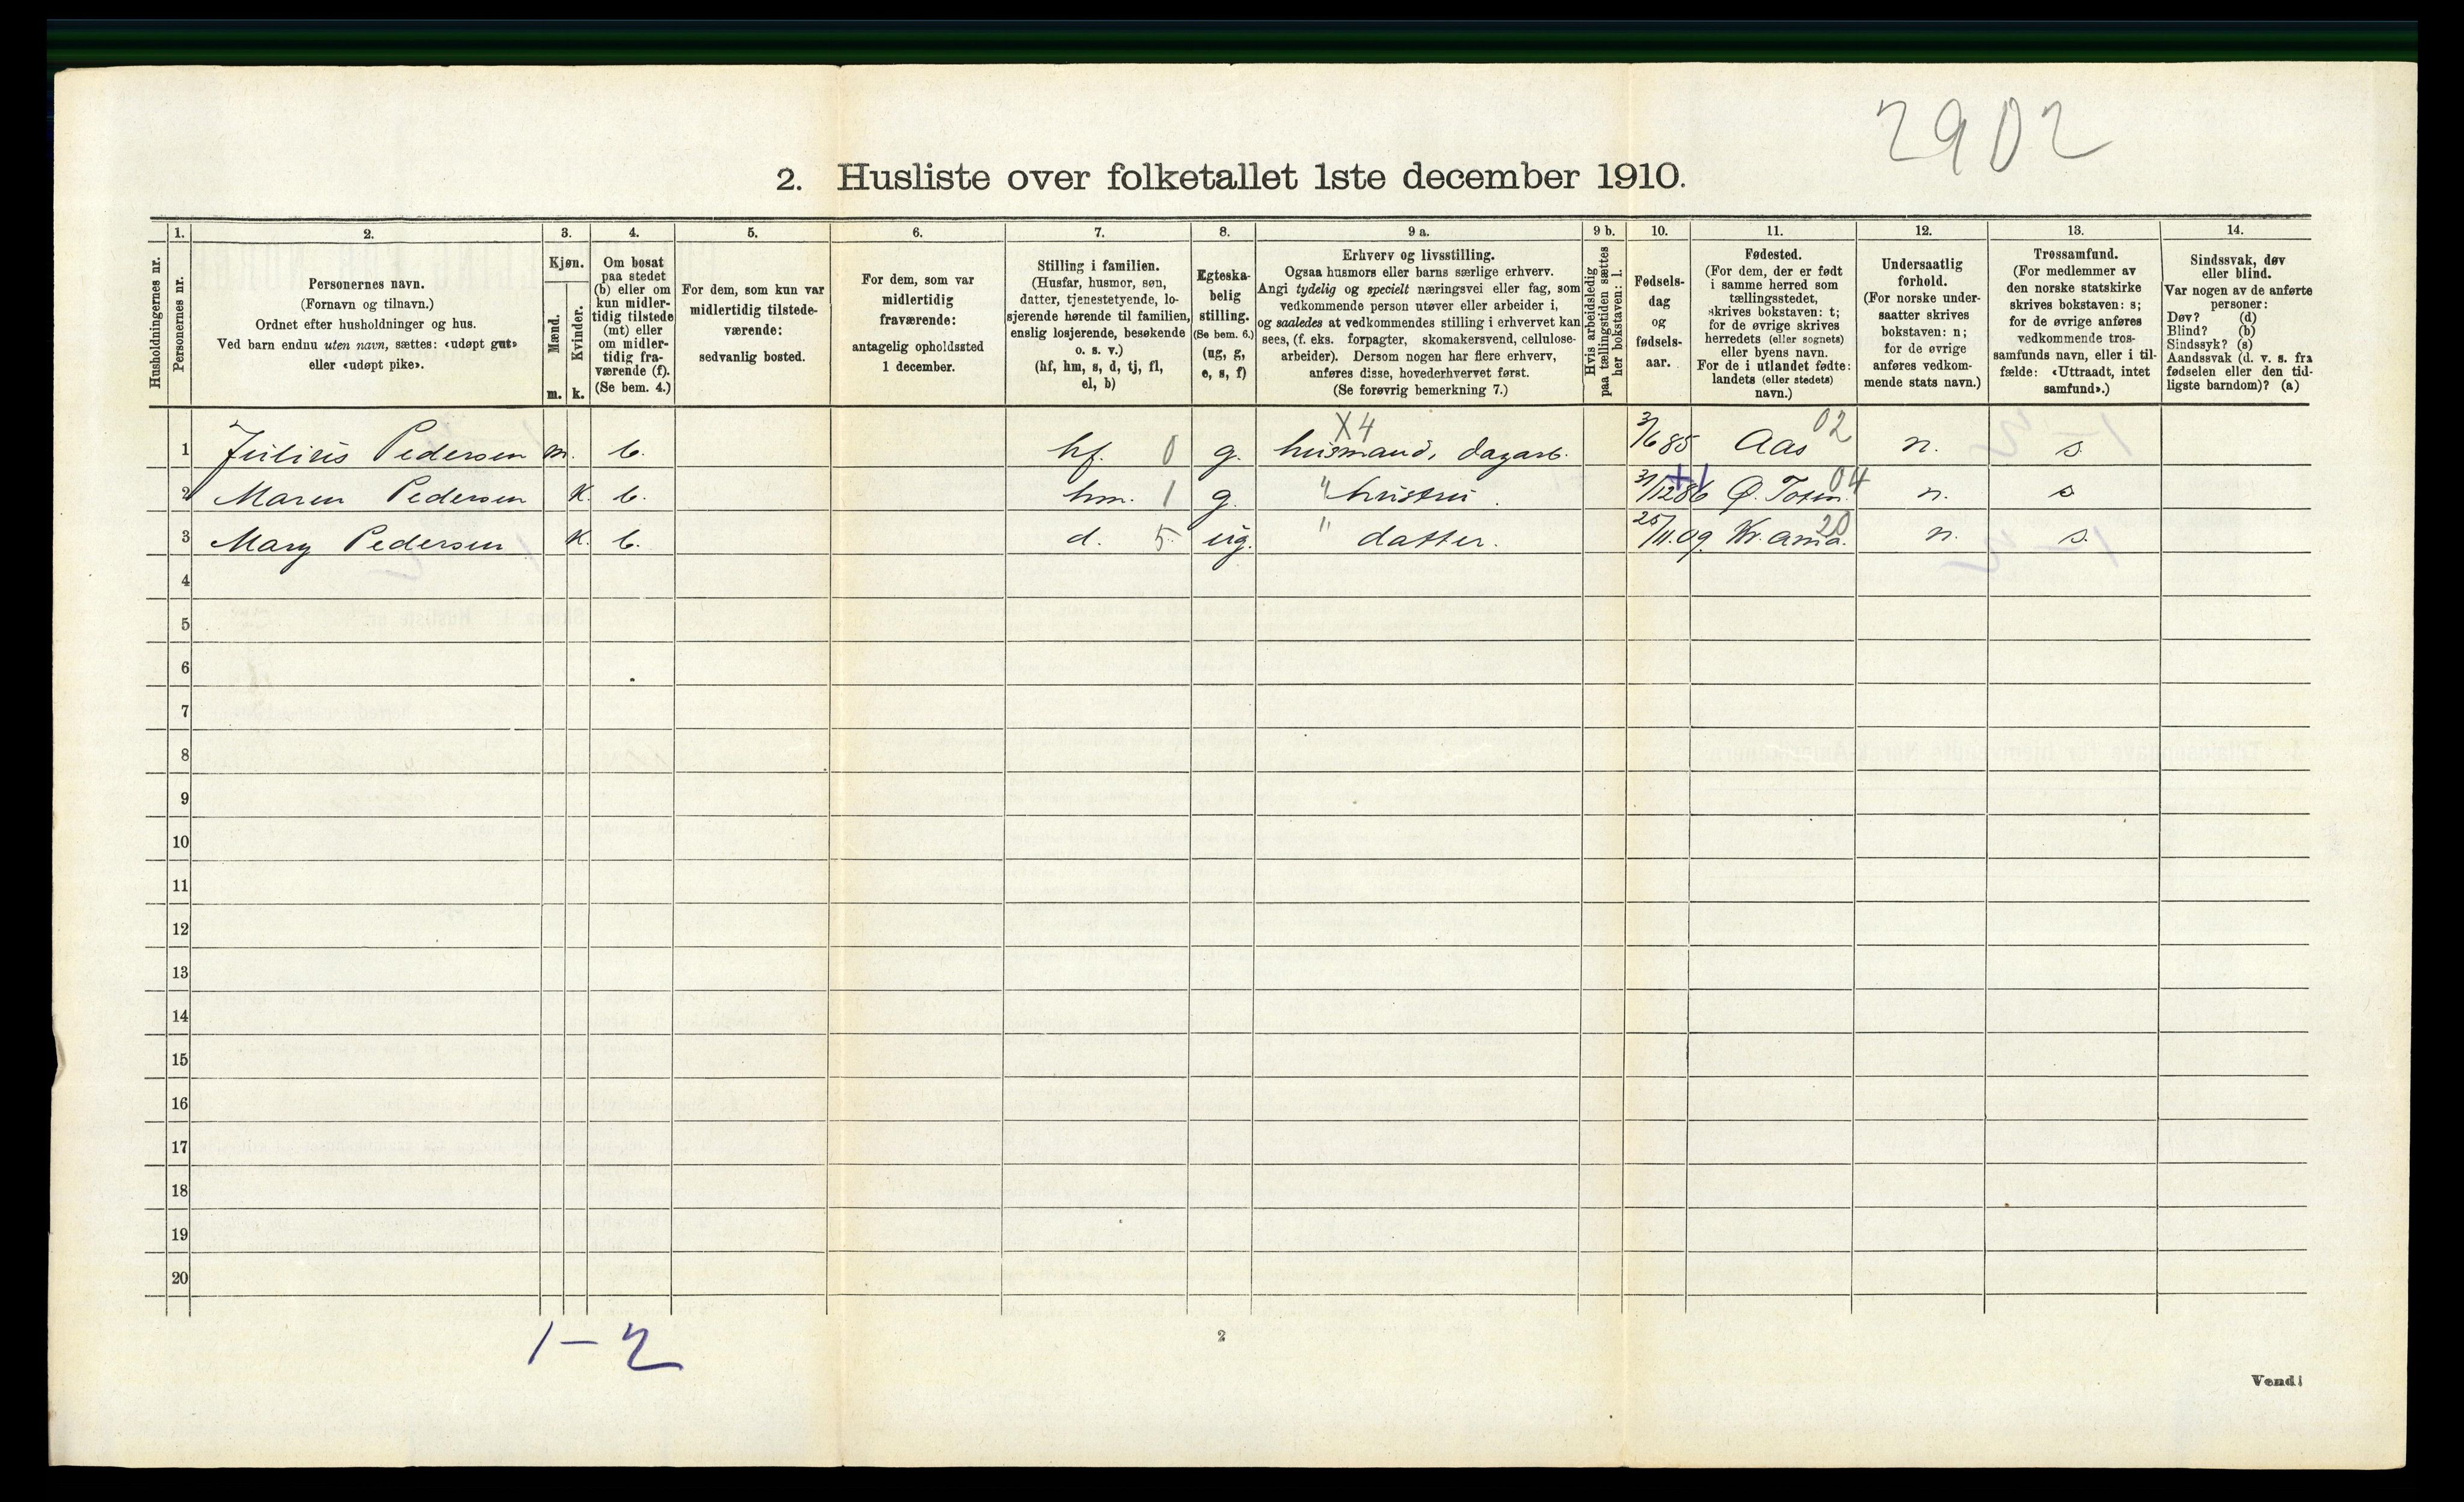 2902
2. Husliste over folketallet 1ste december 1910.
Husholdningernes nr.
1.
Personernes nr.
2.
Personernes navn.
(Fornavn og tilnavn.)
Ordnet efter husholdninger og hus.
Ved barn endnu uten navn, sættes: «udøpt gut»
eller «udøpt pike».
3.
Kjøn.
Mænd.
Kvinder.
m. k.
4.
Om bosat
paa stedet
(b) eller om
kun midler-
tidig tilstede
(mt) eller
om midler-
tidig fra-
værende (f).
(Se bem. 4.)
5.
For dem, som kun var
midlertidig tilstede-
værende:
sedvanlig bosted.
6.
For dem, som var
midlertidig
fraværende:
antagelig opholdssted
1 december.
7.
Stilling i familien.
(Husfar, husmor, søn,
datter, tjenestetyende, lo-
sjerende hørende til familien,
enslig losjerende, besøkende
o. s. v.)
(hf, hm, s, d, tj, fl,
el, b)
8.
Egteska-
belig
stilling.
(Se bem. 6.)
(ug, g,
e, s, f)
9 a.
Erhverv og livsstilling.
Ogsaa husmors eller barns særlige erhverv.
Angi tydelig og specielt næringsvei eller fag, som
vedkommende person utøver eller arbeider i,
og saaledes at vedkommendes stilling i erhvervet kan
sees, (f. eks. forpagter, skomakersvend, cellulose-
arbeider). Dersom nogen har flere erhverv,
anføres disse, hovederhvervet først.
(Se forøvrig bemerkning 7.)
9 b.
Hvis arbeidsledig
paa tællingstiden sættes
her bokstaven: l.
10.
Fødsels-
dag
og
fødsels-
aar.
11.
Fødested.
(For dem, der er født
i samme herred som
tællingsstedet,
skrives bokstaven: t;
for de øvrige skrives
herredets (eller sognets)
eller byens navn.
For de i utlandet fødte:
landets (eller stedets)
navn.)
12.
Undersaatlig
forhold.
(For norske under-
saatter skrives
bokstaven: n;
for de øvrige
anføres vedkom-
mende stats navn.)
13.
Trossamfund.
(For medlemmer av
den norske statskirke
skrives bokstaven: s;
for de øvrige anføres
vedkommende tros-
samfunds navn, eller i til-
fælde: «Uttraadt, intet
samfund».)
14.
Sindssvak, døv
eller blind.
Var nogen av de anførte
personer:
Døv? (d)
Blind? (b)
Sindssyk? (s)
Aandssvak (d. v. s. fra
fødselen eller den tid-
ligste barndom)? (a)
X4 02
1 Julius Pedersen m. b. hf. 0 g. husmand, dagarb. 3/6 85 Aas n. s.
2 Maren Pedersen K. b. hm. 1 g. " hustru. 31/12 86 Ø. Toten. 04 n. s
3 Mary Pedersen K. b. d. 5 ug. " datter. 25/11.09. Kr.ania. 20 n. s.
4
5
6
7
8
9
10
11
12
13
14
15
16
17
18
19
20
1-2
2
Vend!